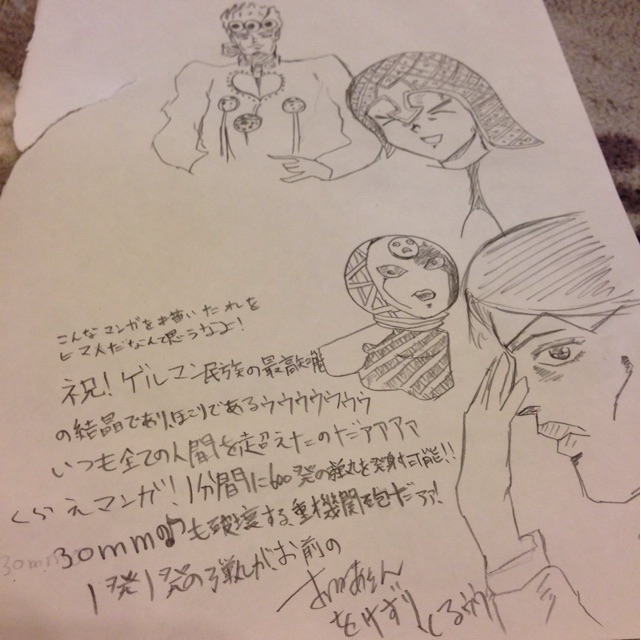 こんなマンガをお書いたれを
ヒマ人だなんて思うなよ!
祝!ゲルマン民族の最高知能
の結晶でありほこりであるゥゥゥゥゥゥゥ
いつも全ての人間を超えたのだァァァァ
くらえマンガ!1分間に600発の弾丸を発射可能!!
30mmの も破壊する重機関砲だァァ!
1発1発の弾丸がお前の
をけずり とるやつ
30mm